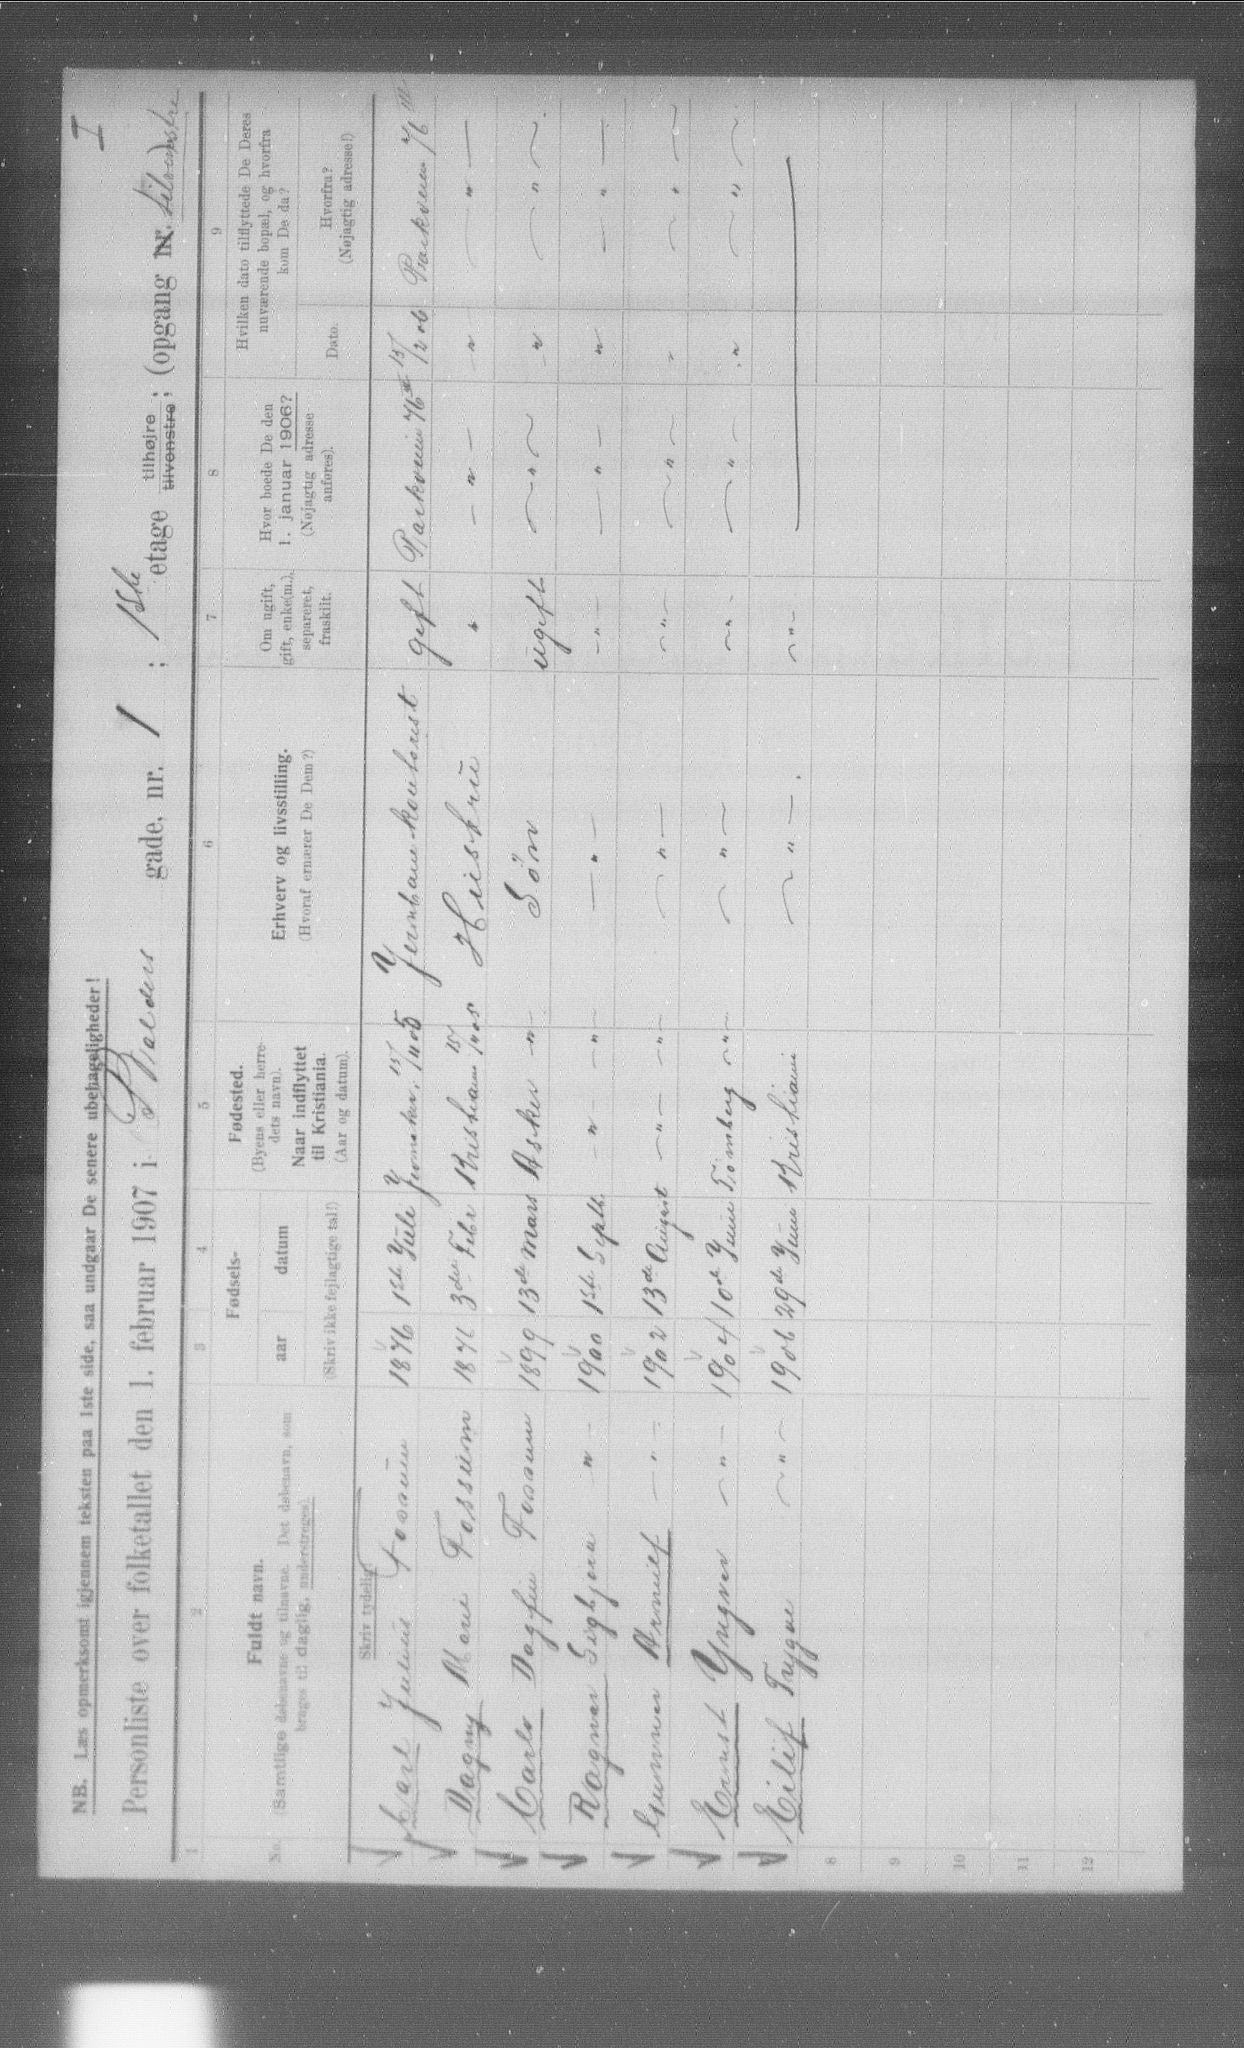 I
NB. Læs opmerksomt igjennem teksten paa 1ste side, saa undgaar De senere ubehageligheder!
Personliste over folketallet den 1. februar 1907 i Balders gade, nr. 1 ; 1ste etage tilhøjre tilvenstre ; (opgang nr. tilvenstre)
1 2 3 4 5 6 7 8 9
No.
Fuldt navn.
(Samtlige døbenavne og tilnavne. Det døbenavn, som
bruges til daglig, understreges).
Skriv tydelig!
Fødsels-
aar datum
(Skriv ikke fejlagtige tal!)
Fødested.
(Byens eller herre-
dets navn).
Naar indflyttet
til Kristiania.
(Aar og datum).
Erhverv og livsstilling.
(Hvoraf ernærer De Dem?)
Om ugift,
gift, enke(m.),
separeret,
fraskilt.
Hvor boede De den
1. januar 1906?
(Nøjagtig adresse
anføres).
Hvilken dato tilflyttede De Deres
nuværende bopæl, og hvorfra
kom De da?
Dato.
Hvorfra?
(Nøjagtig adresse!)
Carl Julius Fossum 1876 1ste Juli Jevnaker, Jernbane-kontorist gift Parkveien 15/12 06 Parkveien
Dagny Marie Fossum 3die Febr Kristiania Hustru " — " — " — " —
Carlo Dagfin Fossum 1899 13de Mars Asker — " — Søn ugift — " — " — " —
Ragnar Sigbjørn — " — 1900 1ste Septb. — " — — " — — " — — " — — " — " — " —
Gunnar Arnulf — " — 1902 13de August — " — — " — — " — — " — — " — " — " —
Ernst Yngvar — " — 1904 10de Juni Tönsberg — " — — " — — " — — " — " — " —
Eilif Trygve — " — 1906 29de Juni Kristiania — " — — " —
8
9
10
11
12